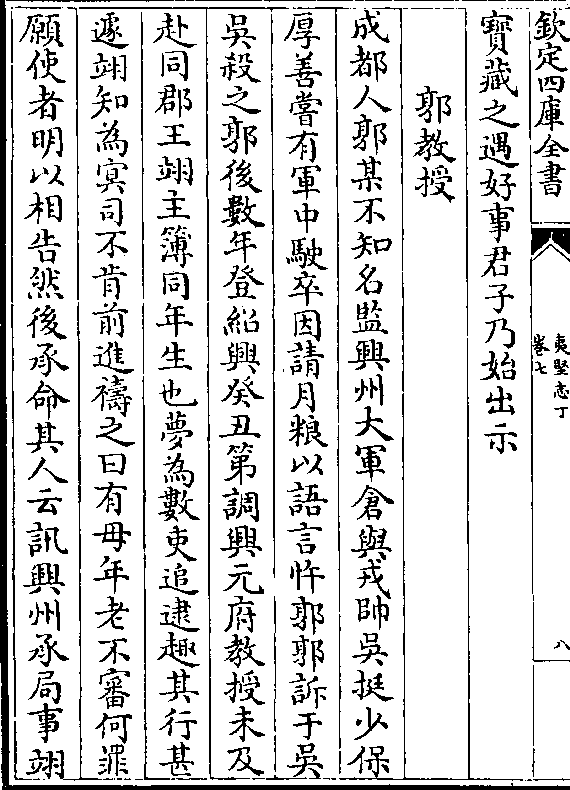 欽定四庫全書
夷堅志丁
卷七
八
寶藏之遇好事君子乃始出示
郭教授
成都人郭某不知名監興州大軍倉與戎帥吳挺少保
厚善嘗有軍中駛卒因請月粮以語言忤郭郭訴于吳
吳殺之郭後數年登紹興癸丑第調興元府教授未及
赴同郡王翊主簿同年生也夢為數吏追逮趣其行甚
遽翊知為冥司不肯前進禱之曰有毋年老不審何罪
願使者明以相告然後承命其人云訊興州承局事翊